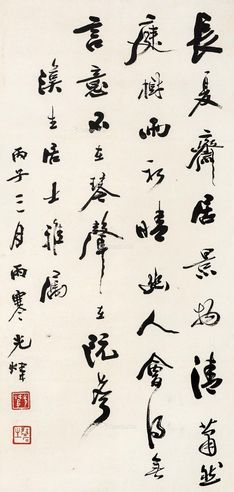 長夏齋居景物清蕭然
庭樹雨初晴幽人會得無
言意不在琴聲在阮聲
漢生居士雅屬
丙子三月雨寒光煒